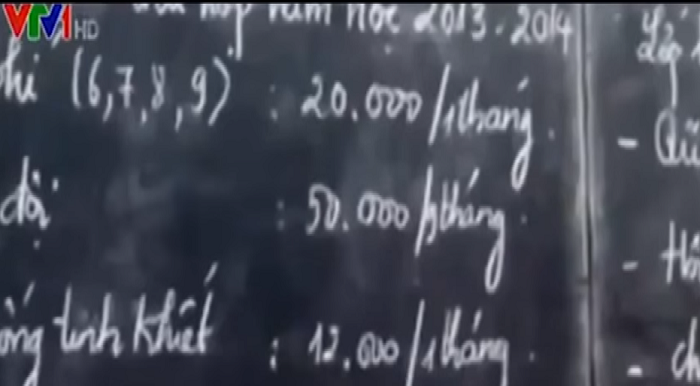 VTV1 HD
năm học 2013-2014
(6,7,8,9) : 20.000/1tháng.
đội : 50.000/9tháng.
tinh khiết : 12.000/1tháng.
Lớp
- Quĩ
-
-